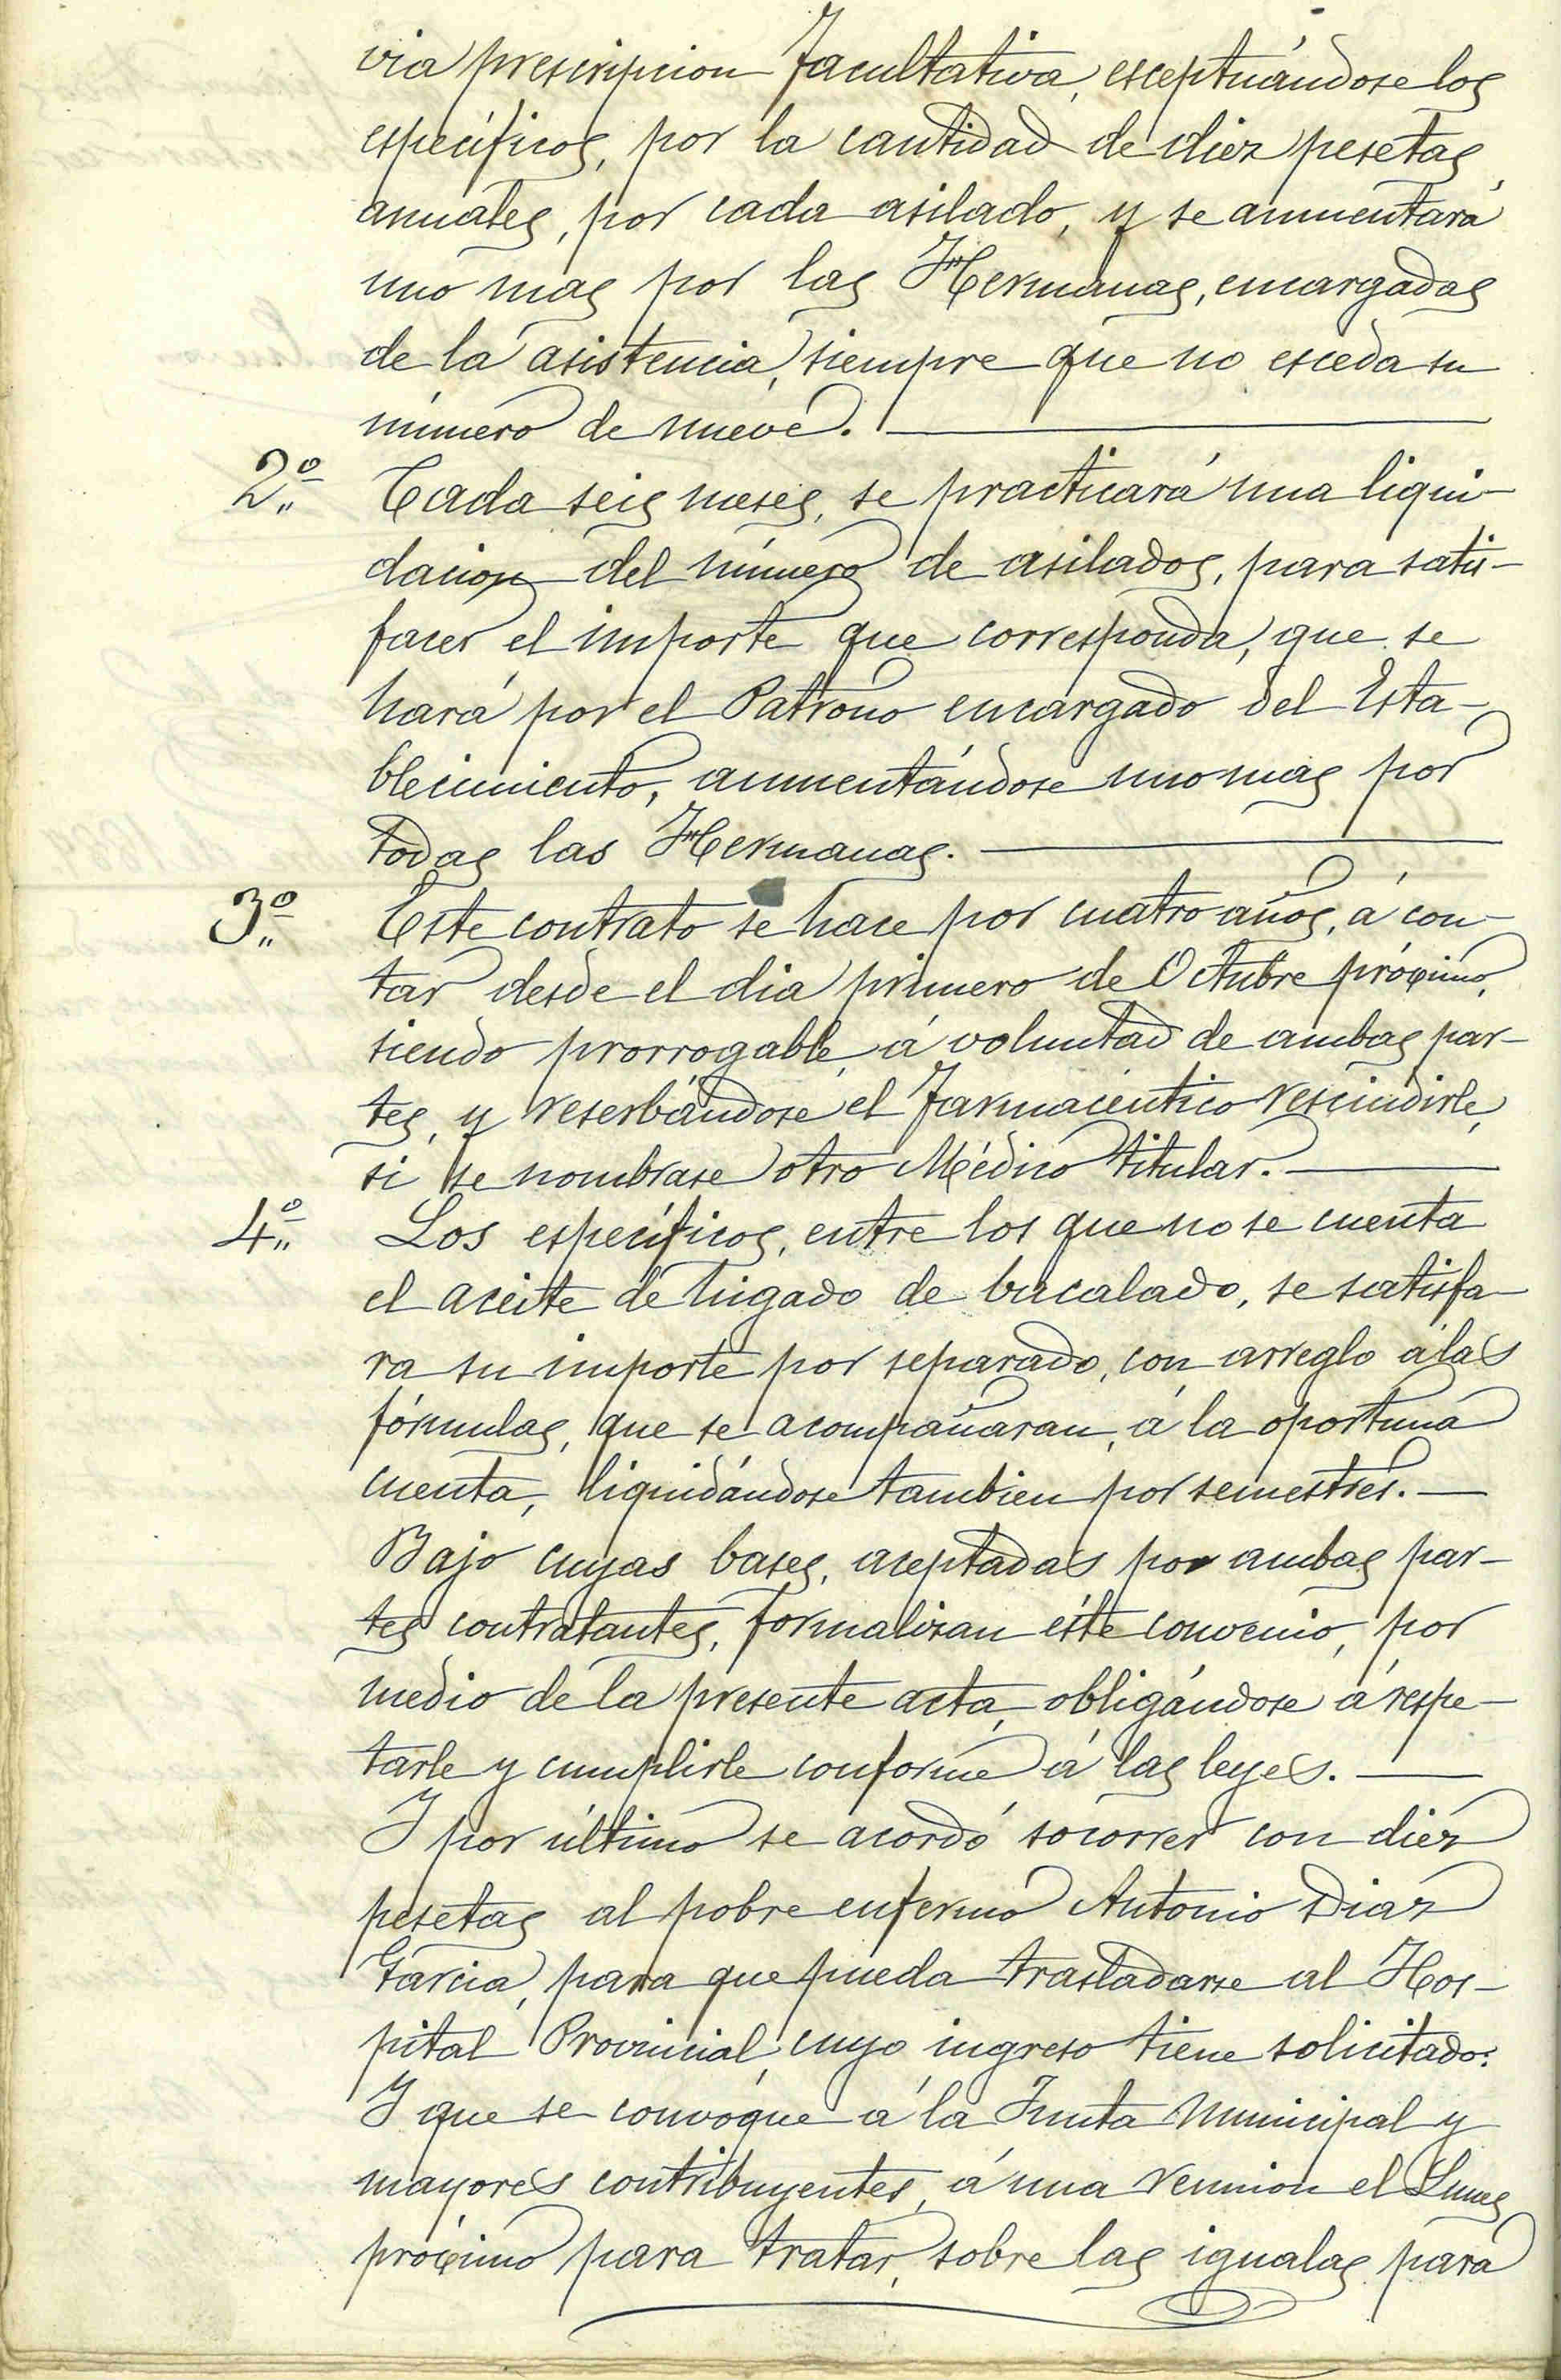 via prescripcion facultativa, esceptuándose los
específicos, por la cantidad de diez pesetas
anuales, por cada asilado, y se aumentará
uno mas por las Hermanas, encargadas
de la asistencia, siempre que no esceda su
número de nueve.
2.º Cada seis meses, se practicará una liqui-
dacion del número de asilados, para satis-
facer el importe que corresponda, que se
hará por el Patrono encargado del Esta-
blecimiento, aumentándose uno mas por
todas las Hermanas.
3.º Este contrato se hace por cuatro años, á con-
tar desde el dia primero de Octubre próximo,
siendo prorrogable, á voluntad de ambas par-
tes, y reserbándose el Farmacéutico rescindirle,
si se nombrase otro Médico titular.
4.º Los específicos, entre los que no se cuenta
el aceite de higado de bacalado, se satisfa-
ra su importe por separado, con arreglo á las
fórmulas, que se acompañaran, á la oportuna
cuenta, liquidándose tambien por semestres.
Bajo cuyas bases, aceptadas por ambas par-
tes contratantes, formalizan éste convenio, por
medio de la presente acta, obligándose á respe-
tarle y cumplirle conforme á las leyes.
Y por último se acordó socorrer con diez
pesetas al pobre enfermo Antonio Diaz
Garcia, para que pueda trasladarse al Hos-
pital Provincial, cuyo ingreso tiene solicitado.
Y que se convoque á la Junta Municipal y
mayores contribuyentes, á una reunion el Lunes
próximo para tratar, sobre las igualas para